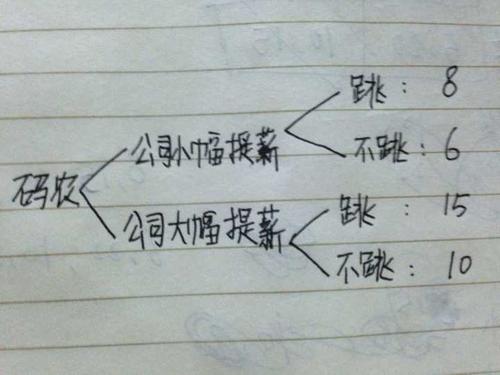 跳： 8
公司小幅提薪
不跳：6
码农
跳： 15
公司大幅提薪
不跳：10